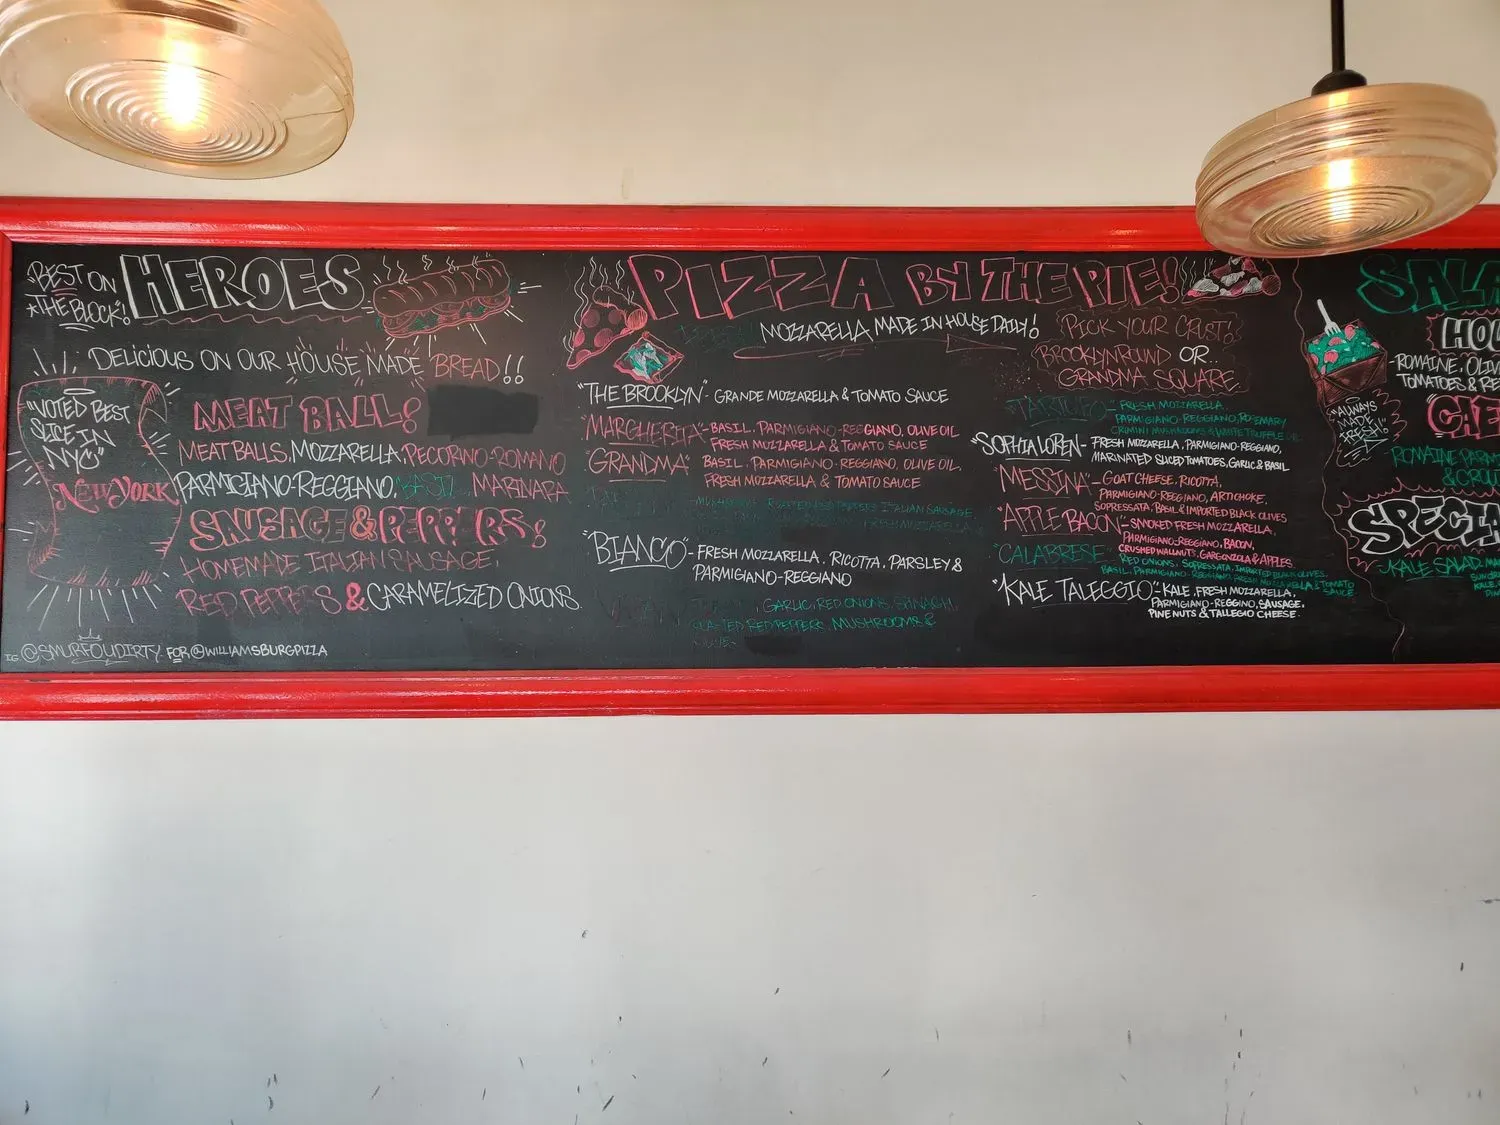 "BEST ON
THE BLOCK!
HEROES
DELICIOUS ON OUR HOUSE MADE BREAD!!
"VOTED BEST
SLICE IN
NYC"
NEW YORK
MEAT BALL!
MEAT BALLS, MOZZARELLA, PECORINO-ROMANO
PARMIGIANO-REGGIANO, BASIL, MARINARA
SAUSAGE & PEPPERS!
HOMEMADE ITALIAN SAUSAGE,
RED PEPPERS & CARAMELIZED ONIONS.
IG @SMURFOUDIRTY FOR @WILLIAMSBURGPIZZA
PIZZA BY THE PIE!
FRESH MOZZARELLA MADE IN HOUSE DAILY!
PICK YOUR CRUST!
BROOKLYN ROUND OR..
GRANDMA SQUARE
"THE BROOKLYN" - GRANDE MOZZARELLA & TOMATO SAUCE
MARGHERITA" - BASIL, PARMIGIANO-REGGIANO, OLIVE OIL
FRESH MOZZARELLA & TOMATO SAUCE
"GRANDMA" BASIL, PARMIGIANO-REGGIANO, OLIVE OIL,
FRESH MOZZARELLA & TOMATO SAUCE
MUSHROOMS, PEPPERS ITALIAN SAUSAGE,
FRESH MOZZARELLA &
"BIANCO" - FRESH MOZZARELLA, RICOTTA, PARSLEY &
PARMIGIANO-REGGIANO
, GARLIC, RED ONIONS, SPINACH,
ROASTED RED PEPPERS, MUSHROOMS &
TARTUFO - FRESH MOZZARELLA,
PARMIGIANO-REGGIANO, ROSEMARY
CRIMINI MUSHROOMS & WHITE TRUFFLE OIL
"SOPHIA LOREN - FRESH MOZZARELLA, PARMIGIANO-REGGIANO,
MARINATED SLICED TOMATOES, GARLIC & BASIL
"MESSINA" - GOAT CHEESE, RICOTTA,
PARMIGIANO-REGGIANO, ARTICHOKE,
SOPRESSATA, BASIL & IMPORTED BLACK OLIVES
"APPLE BACON" - SMOKED FRESH MOZZARELLA,
PARMIGIANO-REGGIANO, BACON,
CRUSHED WALNUTS, GARGONZOLA & APPLES.
"CALABRESE" RED ONIONS, SOPRESSATA, IMPORTED BLACK OLIVES,
BASIL, PARMIGIANO-REGGIANO, FRESH MOZZARELLA & TOMATO
SAUCE
"KALE TALEGGIO" - KALE, FRESH MOZZARELLA,
PARMIGIANO-REGGINO, SAUSAGE,
PINE NUTS & TALLEGIO CHEESE.
SALA
HOU
-ROMAINE, OLIV
TOMATOES & RE
"ALWAYS
MADE
FRESH!"
CAE
ROMAINE PARM
& CROU
SPECIA
-KALE SALAD